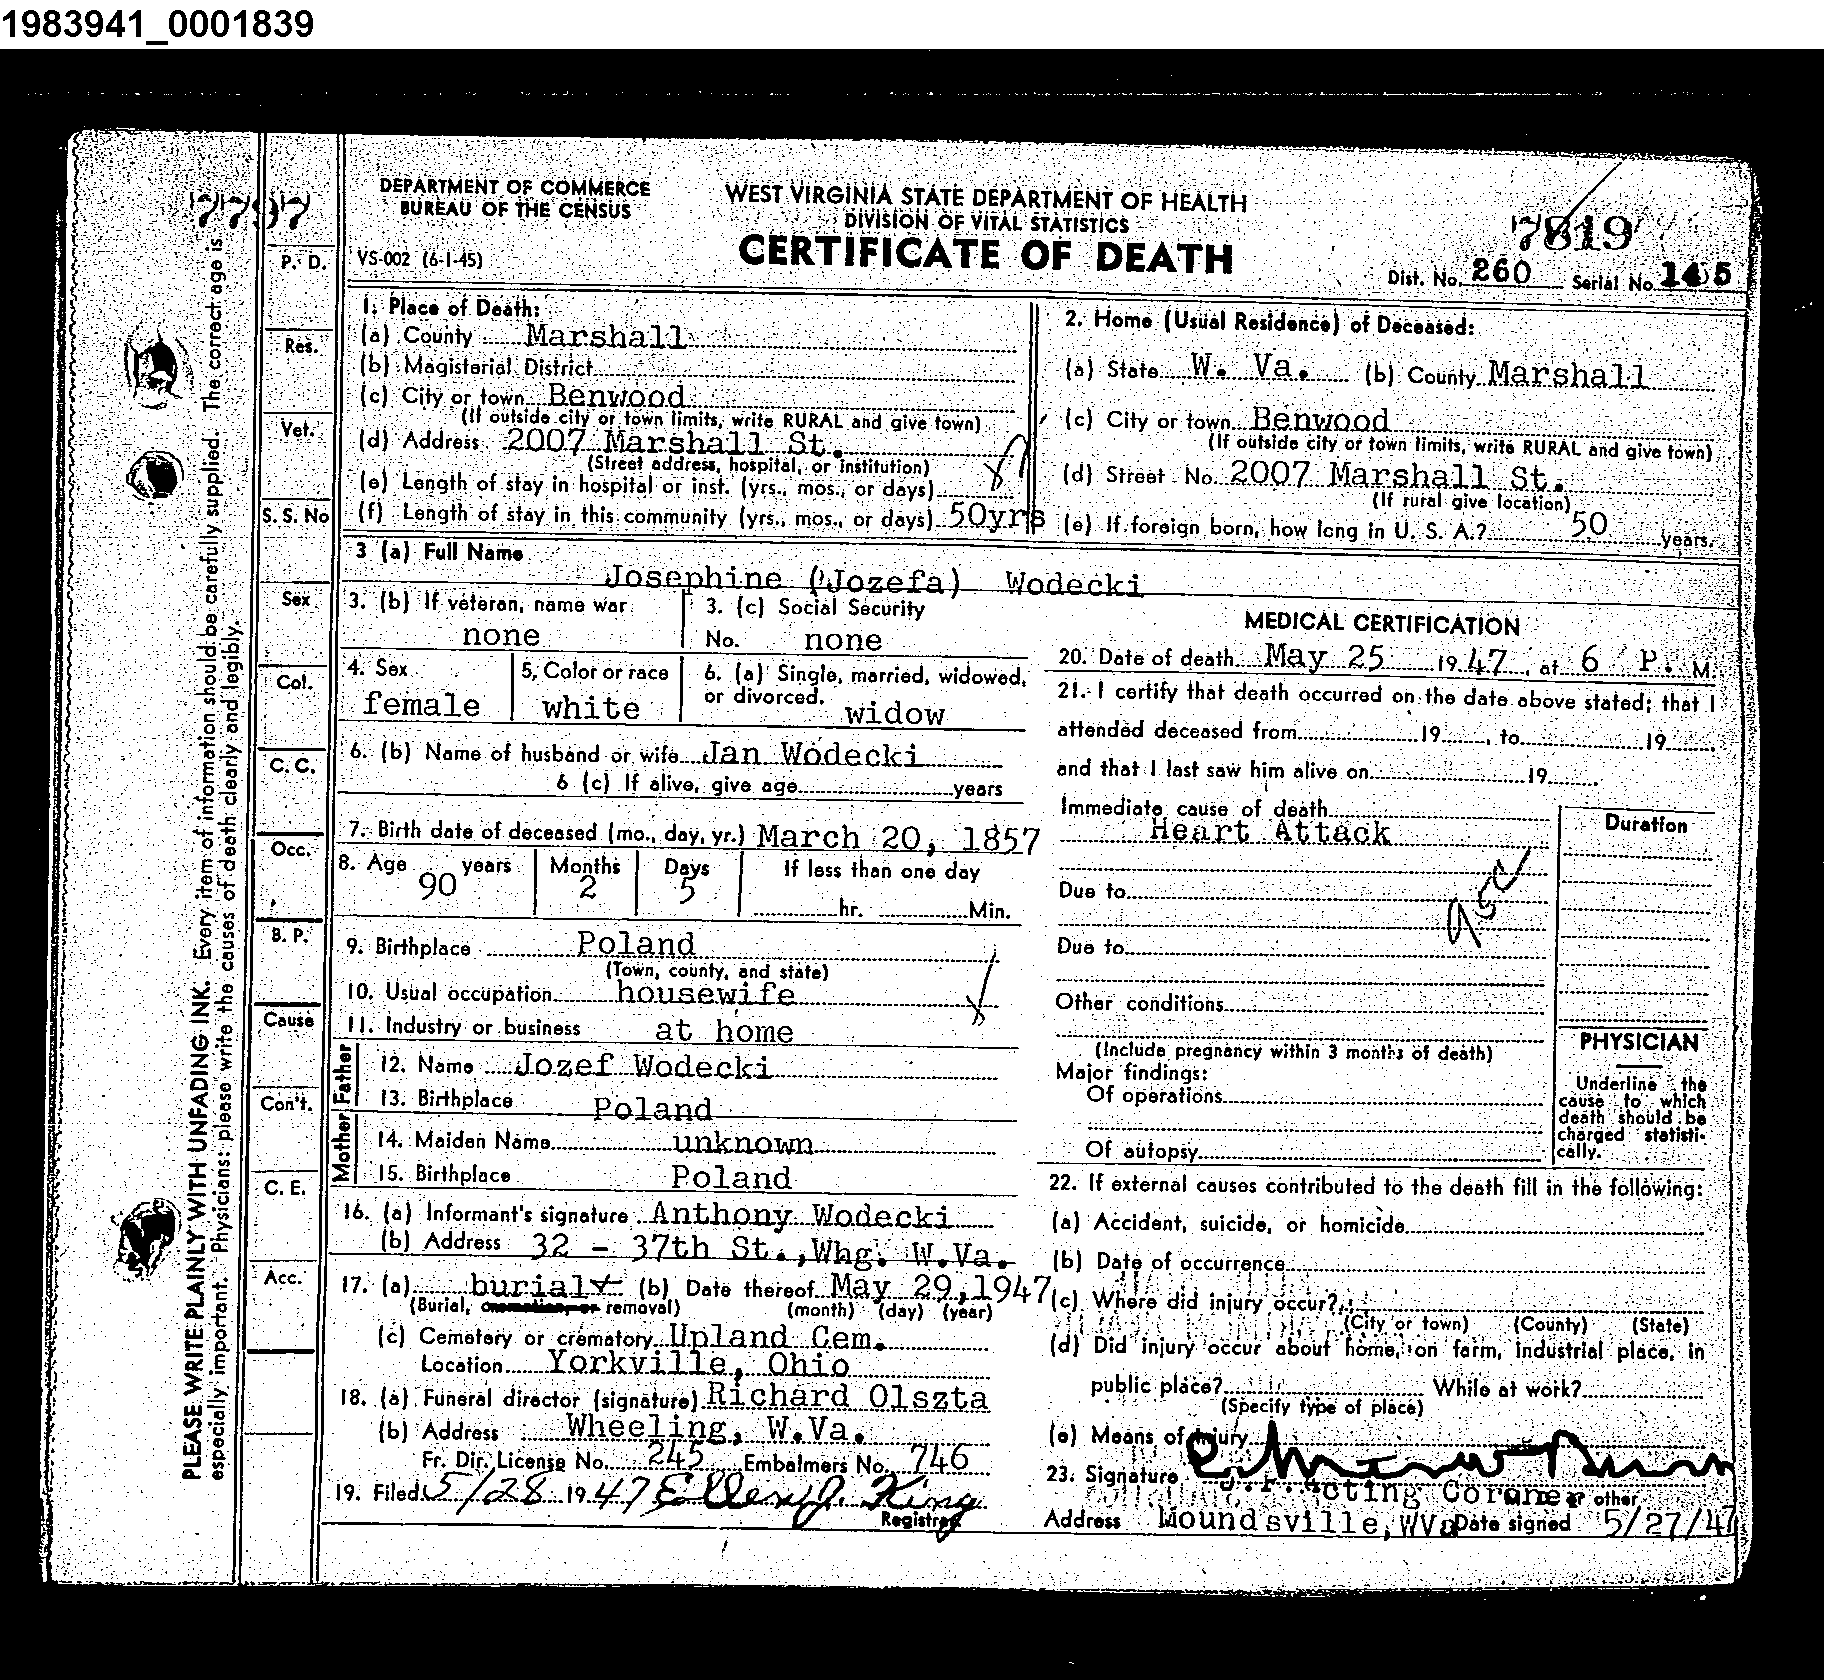 1983941_0001839
7797
DEPARTMENT OF COMMERCE
BUREAU OF THE CENSUS
WEST VIRGINIA STATE DEPARTMENT OF HEALTH
DIVISION OF VITAL STATISTICS
CERTIFICATE OF DEATH
VS-002 (6-1-45)
7819
Dist. No. 260 Serial No. 145
PLEASE WRITE PLAINLY WITH UNFADING INK. Every item of information should be carefully supplied. The correct age is
especially important. Physicians: please write the causes of death clearly and legibly.
P. D.
Res.
Vet.
S. S. No
Sex
Col.
C. C.
Occ.
B. P.
Cause
Con't.
C. E.
Acc.
1. Place of Death:
(a) County Marshall
(b) Magisterial District
(c) City or town Benwood
(If outside city or town limits, write RURAL and give town)
(d) Address 2007 Marshall St.
(Street address, hospital, or institution)
(e) Length of stay in hospital or inst. (yrs., mos., or days)
(f) Length of stay in this community (yrs., mos., or days) 50yrs
2. Home (Usual Residence) of Deceased:
(a) State W. Va. (b) County Marshall
(c) City or town Benwood
(If outside city or town limits, write RURAL and give town)
(d) Street No. 2007 Marshall St.
(If rural give location)
(e) If foreign born, how long in U. S. A.? 50 years.
3 (a) Full Name
Josephine (Jozefa) Wodecki
3. (b) If veteran, name war
none
3. (c) Social Security
No. none
4. Sex
female
5. Color or race
white
6. (a) Single, married, widowed,
or divorced. widow
6. (b) Name of husband or wife Jan Wodecki
6 (c) If alive, give age years
7. Birth date of deceased (mo., day, yr.) March 20, 1857
8. Age years Months Days If less than one day
90 2 5
hr. Min.
9. Birthplace Poland
(Town, county, and state)
10. Usual occupation housewife
11. Industry or business at home
Father
12. Name Jozef Wodecki
13. Birthplace Poland
Mother
14. Maiden Name unknown
15. Birthplace Poland
16. (a) Informant's signature Anthony Wodecki
(b) Address 32 - 37th St., Whg. W.Va.
17. (a) burial (b) Date thereof May 29, 1947
(Burial, cremation, or removal) (month) (day) (year)
(c) Cemetery or crematory Upland Cem.
Location Yorkville, Ohio
18. (a) Funeral director (signature) Richard Olszta
(b) Address Wheeling, W.Va.
Fr. Dir. License No. 245 Embalmers No. 746
19. Filed 5/28 1947 Ellery J. King
Registrar
MEDICAL CERTIFICATION
20. Date of death May 25 1947, at 6 P. M.
21. I certify that death occurred on the date above stated; that I
attended deceased from 19 , to 19 .
and that I last saw him alive on 19 .
Immediate cause of death
Heart Attack
Duration
Due to
Due to
Other conditions
(Include pregnancy within 3 months of death)
Major findings:
Of operations
Of autopsy
PHYSICIAN
Underline the
cause to which
death should be
charged statisti-
cally.
22. If external causes contributed to the death fill in the following:
(a) Accident, suicide, or homicide
(b) Date of occurrence
(c) Where did injury occur?
(City or town) (County) (State)
(d) Did injury occur about home, on farm, industrial place, in
public place? While at work?
(Specify type of place)
(e) Means of injury
23. Signature
J.P. Acting Coroner other
Address Moundsville, WVa Date signed 5/27/47